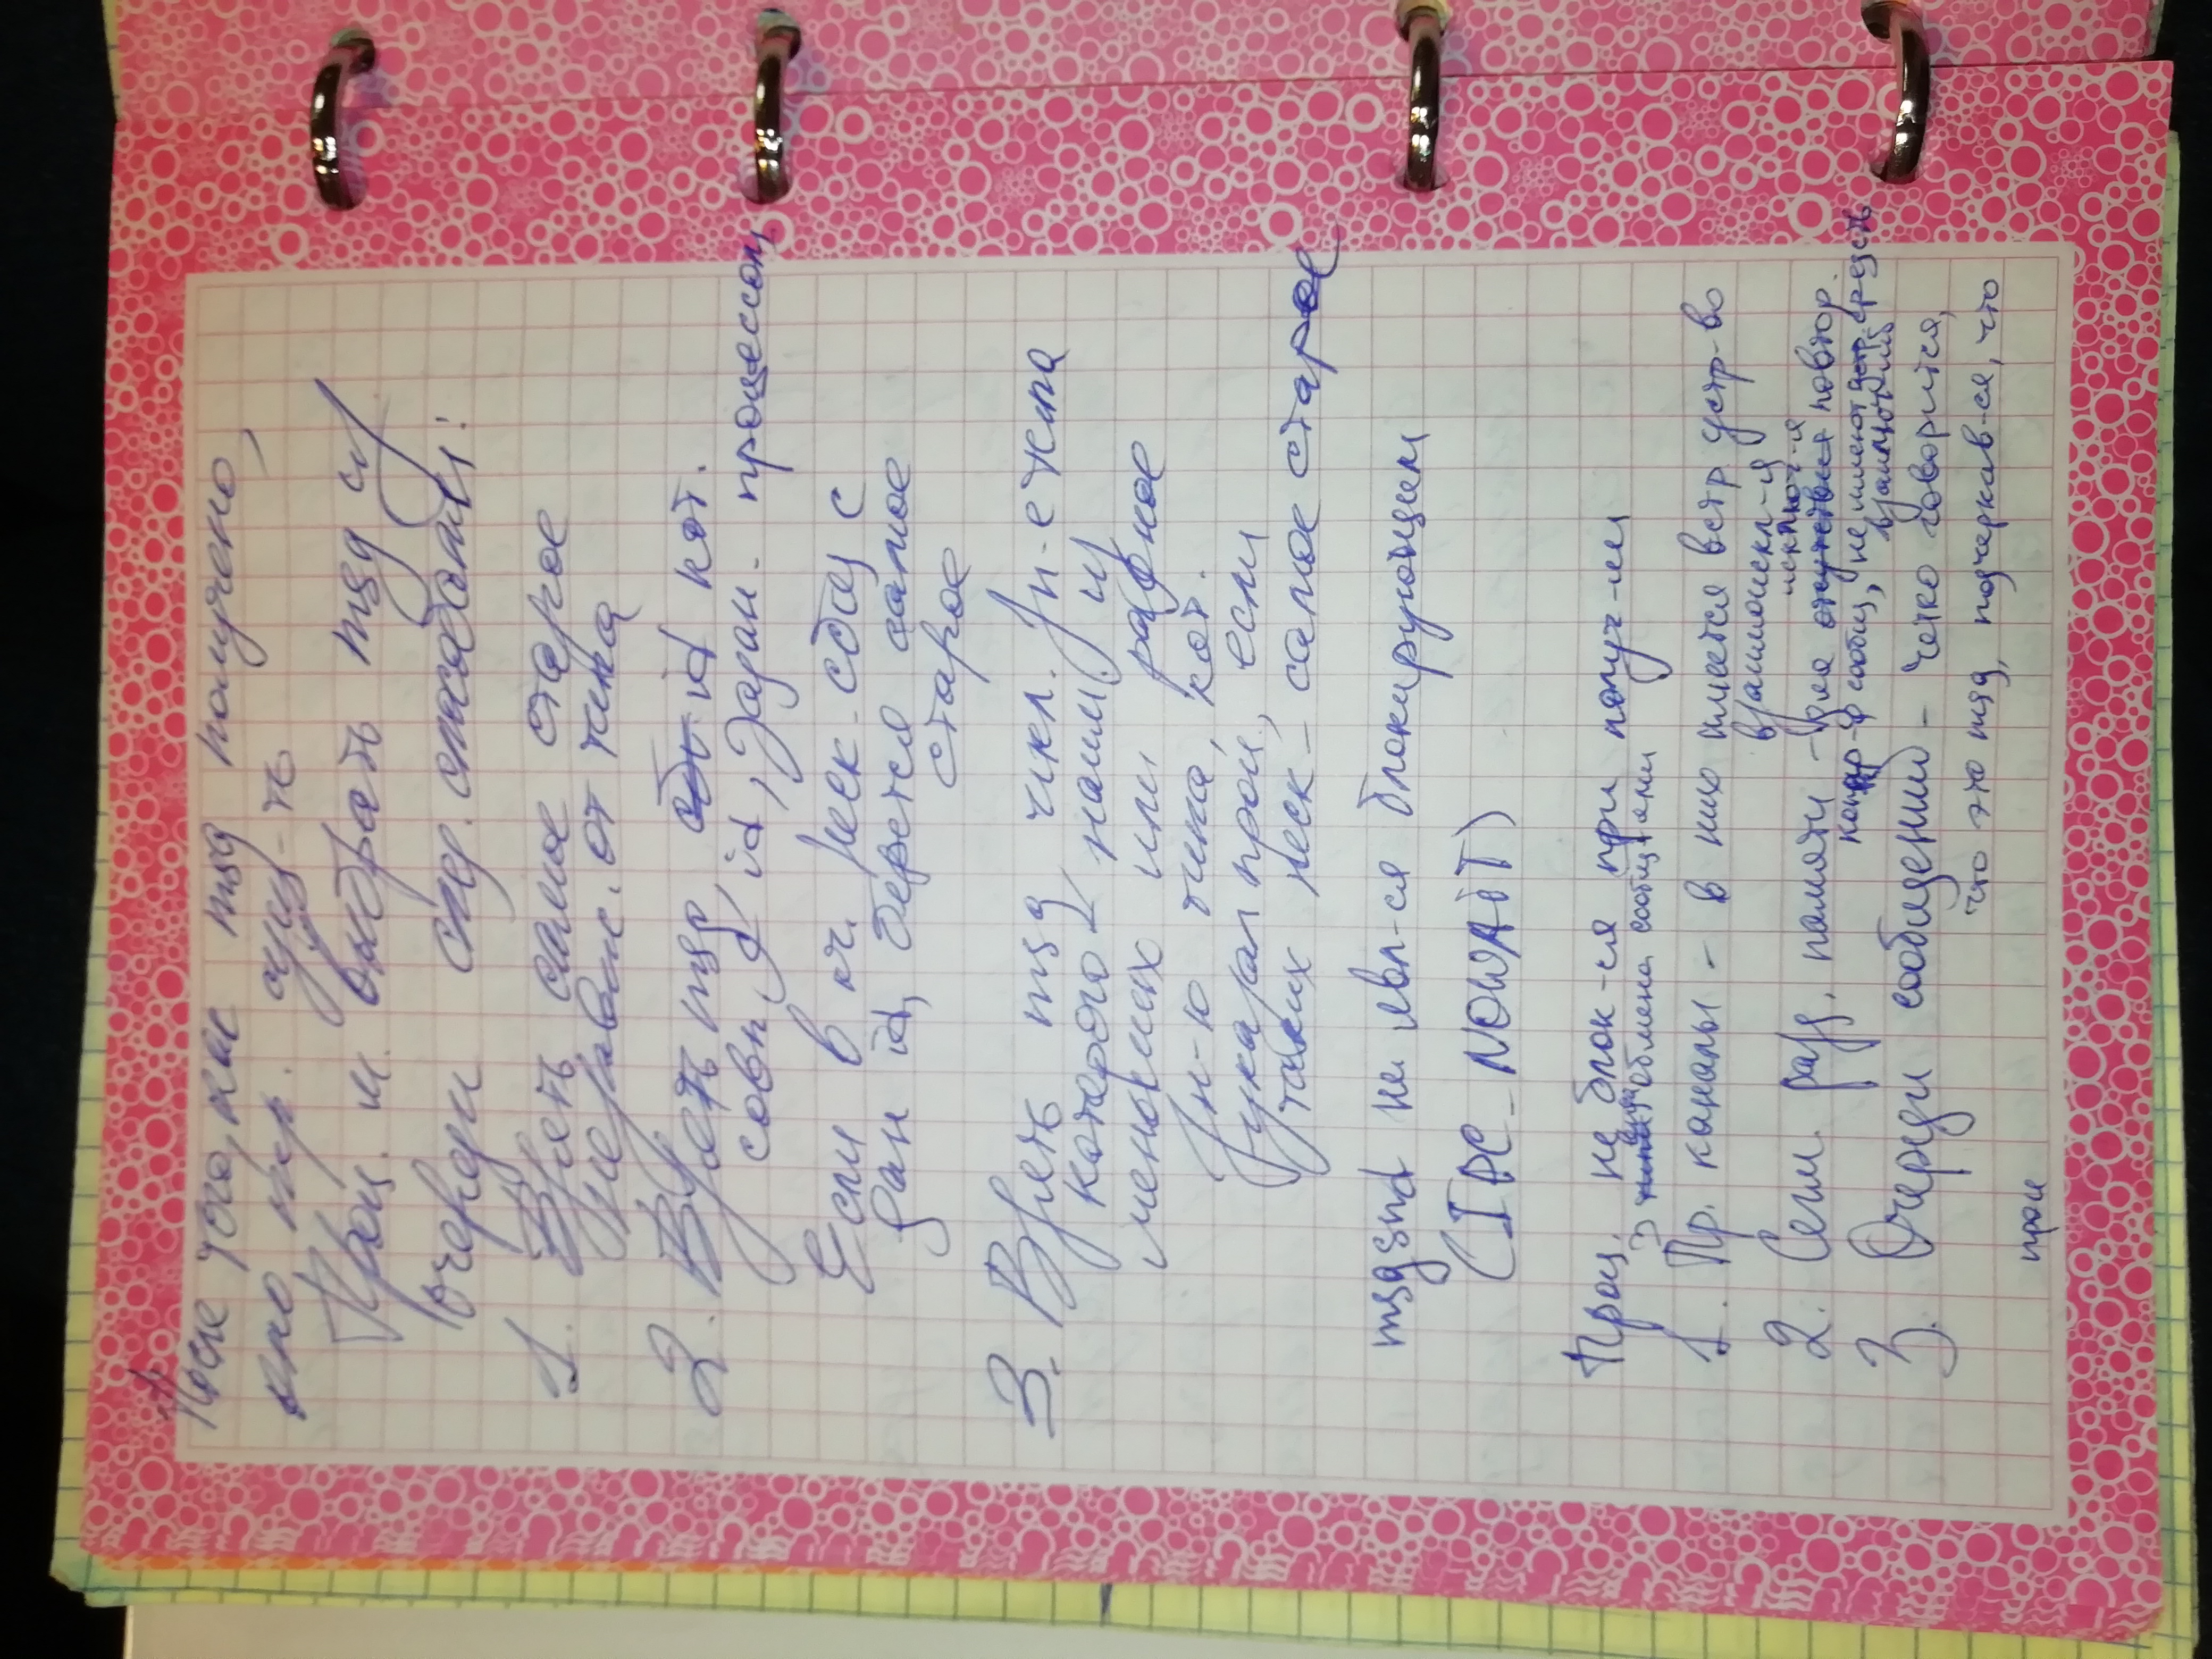 После того, как msg получено,
оно пер. сущ-ть
Проц. м. выбрать msg из
очереди след. способами:
1. Взять самое старое
независ. от типа
2. Взять msg, id кот.
совп. с id, задан. процессом
Если в оч. неск. сбщ с
дан id, берется самое
старое
3. Взять msg, числ. зн-е типа
которого - наим. из
меньших или равное
зн-ю типа, кот.
указал проц., если
таких неск - самое старое
msgsnd не явл-ся блокирующим
(IPC_NOWAiT)
Проц. не блок-ся при получ-ии
3 вида обмена сообщ-ями
1. Пр. каналы - в них имеется встр устр-во
взаимоискл-я
исключ-я
2. Сегм. разд. памяти - для отсутствия повтор.
копир-я сообщ, не имеют средств
3. Очереди сообщений - четко говорится,
что это msg, подчеркив-ся, что
проц